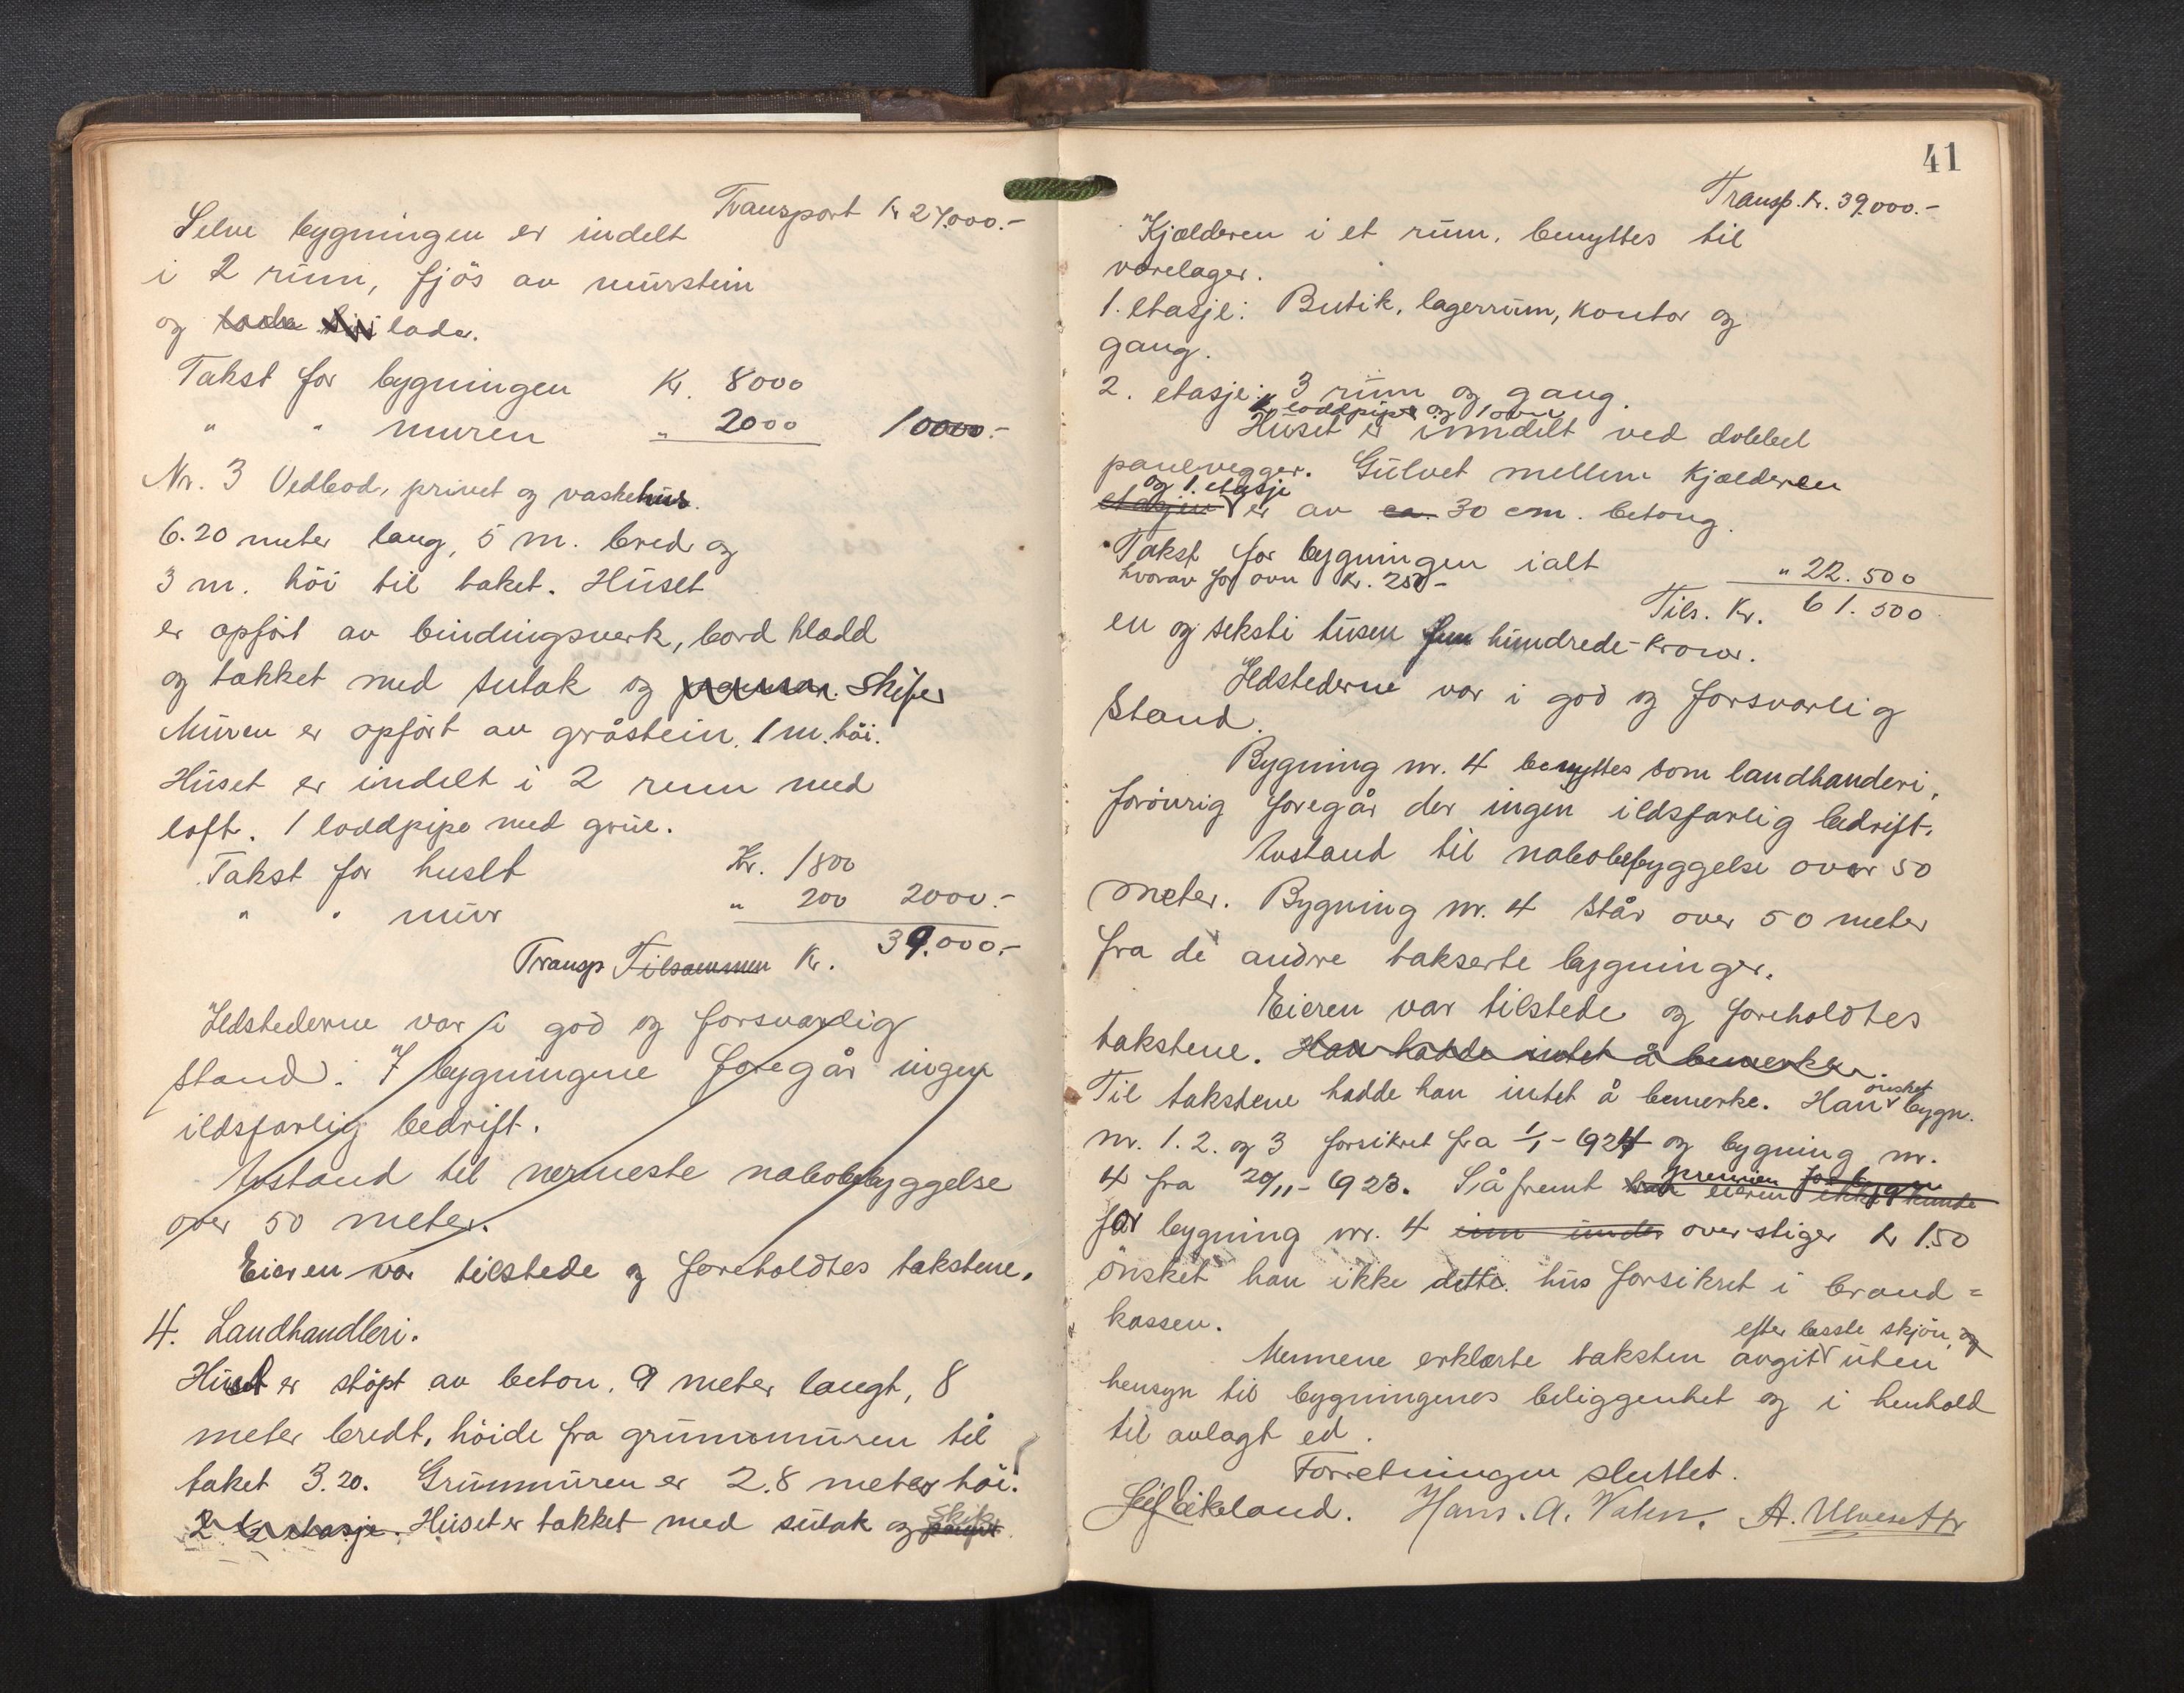 Transport Kr 27.000.-
Selve bygningen er indelt
i 2 rum, fjös av murstein
og lade.
Takst for bygningen Kr. 8000
" " muren " 2000 10000.-
Nr. 3 Vedbod, privet og vaskehus.
6.20 meter lang, 5 m. bred og
3 m. höi til taket. Huset
er opfört av bindingsverk, bordklædd
og tækket med sutak og skifer
Muren er opfört av gråstein. 1 m. höi.
Huset er indelt i 2 rum med
loft. 1 loddpipe med grue.
Takst for huset Kr. 1800
" " mur " 200 2000.-
Transp Tilsammen Kr. 39.000.-
Ildstederne var i god og forsvarlig
stand. I bygningene foregår ingen
ildsfarlig bedrift.
Avstand til nermeste nabobebyggelse
over 50 meter.
Eieren var tilstede og foreholdtes takstene.
4. Landhandleri.
Huset er stöpt av beton. 9 meter langt, 8
meter bredt, höide fra grunnmuren til
taket 3.20. Grunmuren er 2.8 meter höi.
2 etasje. Huset er takket med sutak og skifer
41
Transp. Kr. 39.000.-
Kjælderen i et rum, benyttes til
varelager.
1. etasje: Butik, lagerrum, kontor og
gang.
2. etasje: 3 rum og gang.
1 loddpipe og 1 ovn
Huset er inndelt ved dobbel
panelvegger. Gulvet mellem kjælderen
og 1. etasje
etasjen er av ca. 30 cm. betong.
Takst for bygningen ialt " 22.500
hvorav for ovn Kr. 250-
Tils. Kr. 61.500
en og seksti tusen fem hundrede - kroner.
Ildstederne var i god og forsvarlig
stand.
Bygning nr. 4 benyttes som landhanderi,
forövrig foregår der ingen ildsfarlig bedrift.
Avstand til nabobebyggelse over 50
meter. Bygning nr. 4 står over 50 meter
fra de andre takserte bygninger.
Eieren var tilstede og foreholdtes
takstene. Han hadde intet å bemerke.
Til takstene hadde han intet å bemerke. Han önsket bygn.
nr. 1. 2. og 3 forsikret fra 1/1-1924 og bygning nr.
4 fra 20/11-1923. Såfremt premien for bygn
eieren ikke kunde
for bygning nr. 4 inn under overstiger kr 1.50
önsket han ikke dette hus forsikret i brand=
kassen.
efter beste skjön og
Mennene erklærte taksten avgit uten
hensyn til bygningenes beliggenhet og i henhold
til avlagt ed.
Forretningen sluttet.
Leif Eikeland. Hans. A. A.